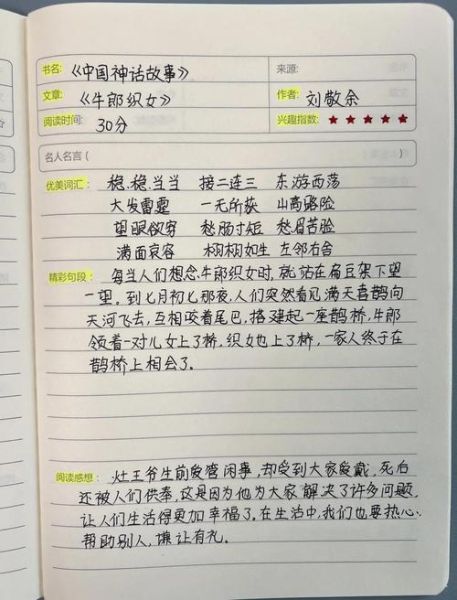 书名: 《中国神话故事》 来源:
文章: 《牛郎织女》 作者: 刘敬余
阅读时间: 30分 兴趣指数: ★★★★★
名人名言 ( )
优美词汇: 稳稳当当 接二连三 东游西荡
大发雷霆 一无所获 山高路险
望眼欲穿 愁肠寸短 愁眉苦脸
满面哀容 栩栩如生 左邻右舍
精彩句段: 每当人们想念牛郎织女时,就站在扁豆架下望
一望。到七月初七那夜,人们突然看见满天喜鹊向
天河飞去,互相咬着尾巴,搭建起一座鹊桥,牛郎
领着一对儿女上了桥,织女也上了桥,一家人终于在
鹊桥上相会了。
阅读感想: 灶王爷生前爱管闲事,却受到大家爱戴,死后
还被人们供奉,这是因为他为大家解决了许多问题,
让人们生活得更加幸福了。在生活中,我们也要热心
帮助别人,谦让有礼。